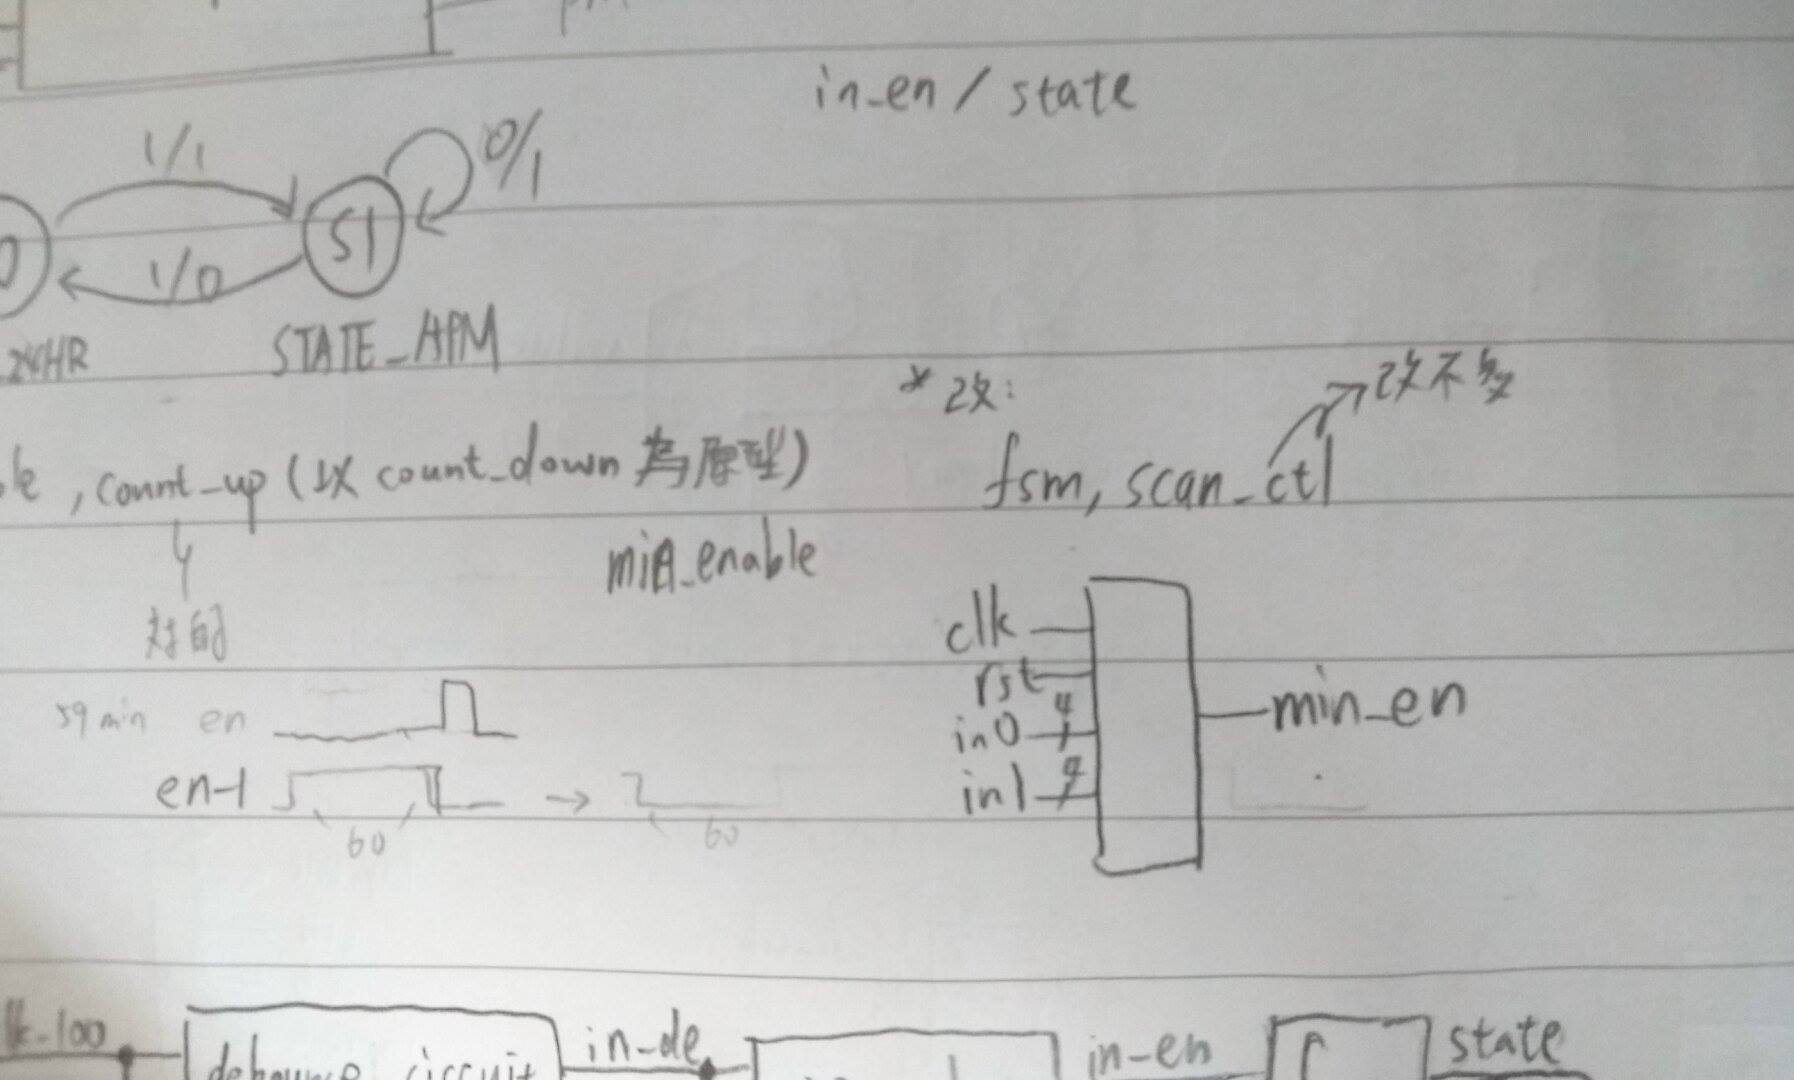 in_en / state
1/1
0/1
S1
1/0
24HR
STATE_APM
* 改:
改不多
, count_up (以 count_down 為原理)
fsm, scan_ctl
min_enable
对的
clk
rst
4
in0
4
in1
min_en
59 min en
en-1
60
60
lk-100
debounce circuit
in-de
in-en
state